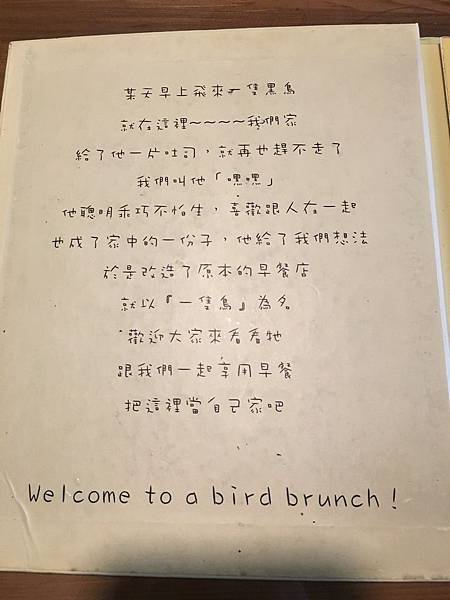 某天早上飛來一隻黑鳥
就在這裡~~~~我們家
給了他一片吐司，就再也趕不走了
我們叫他「嘿嘿」
他聰明乖巧不怕生，喜歡跟人在一起
也成了家中的一份子，他給了我們想法
於是改造了原本的早餐店
就以『一隻鳥』為名
歡迎大家來看看牠
跟我們一起享用早餐
把這裡當自己家吧
Welcome to a bird brunch!